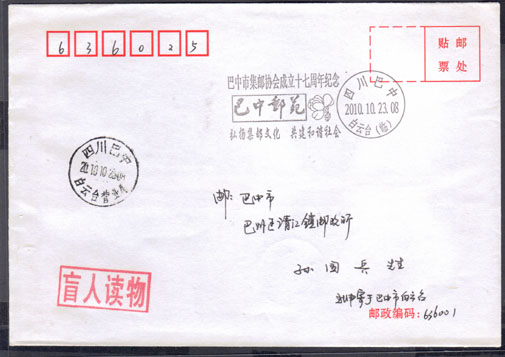 636025
贴 邮
票 处
巴中市集邮协会成立十七周年纪念
巴中邮苑
弘扬集邮文化 共建和谐社会
四川巴中
2010.10.23.08
白云台(临)
四川巴中
白云台营业
邮: 巴中市
巴州区清江镇邮政所
孙国兵 先生
盲人读物
寄于巴中市白云台
邮政编码: 636001